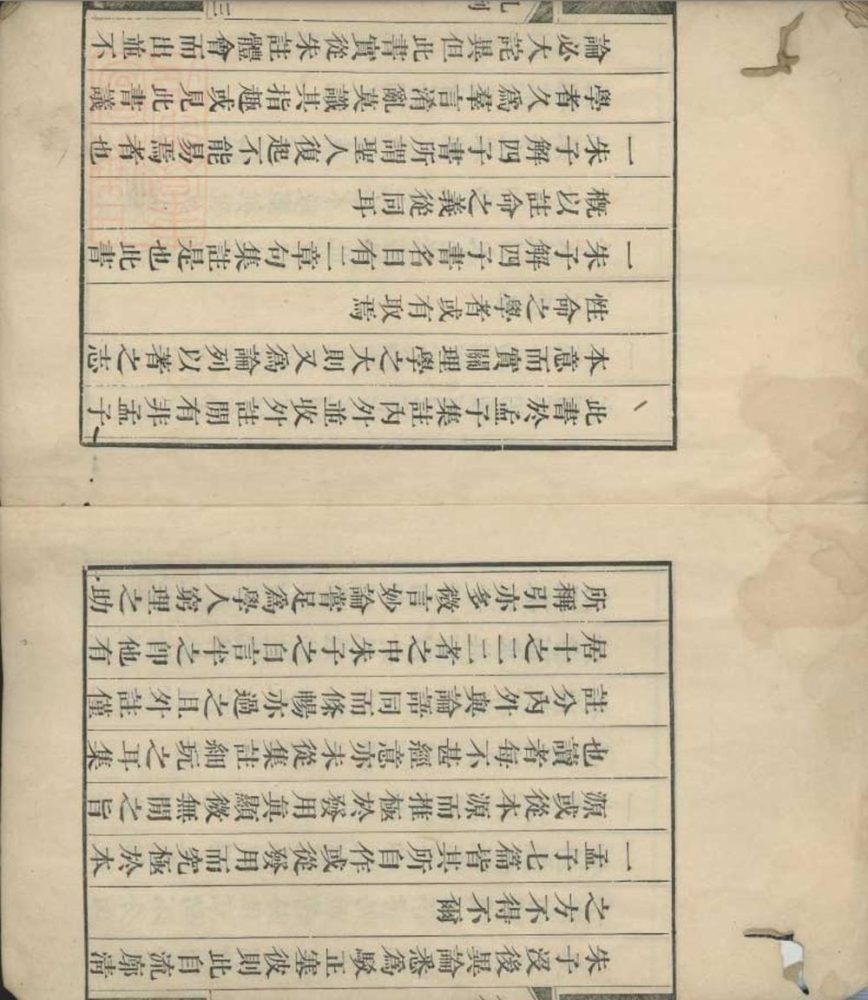 朱子没後異論悉為駁正塞彼則此自流廓清
之方不得不爾
一孟子七篇皆其所自作或從發用而究極於本
源或從本源而推極於發用真顯微無間之旨
也讀者每不甚經意亦未從集註細玩之耳集
註分內外與論語同而條暢亦過之且外註僅
居十之二三者之中朱子之自言半之即他有
所稱引亦多微言妙論嘗足為學人窮理之助
此書於孟子集註內外並收外註間有非孟子
本意而實關理學之大則又為論列以著之志
性命之學者或有取焉
一朱子解四子書名目有二章句集註是也此書
概以註命之義從同耳
一朱子解四子書所謂聖人復起不能易焉者也
學者久為羣言淆亂莫識其指趣或見此書議
論必大詫異但此書實從朱註體會而出並不